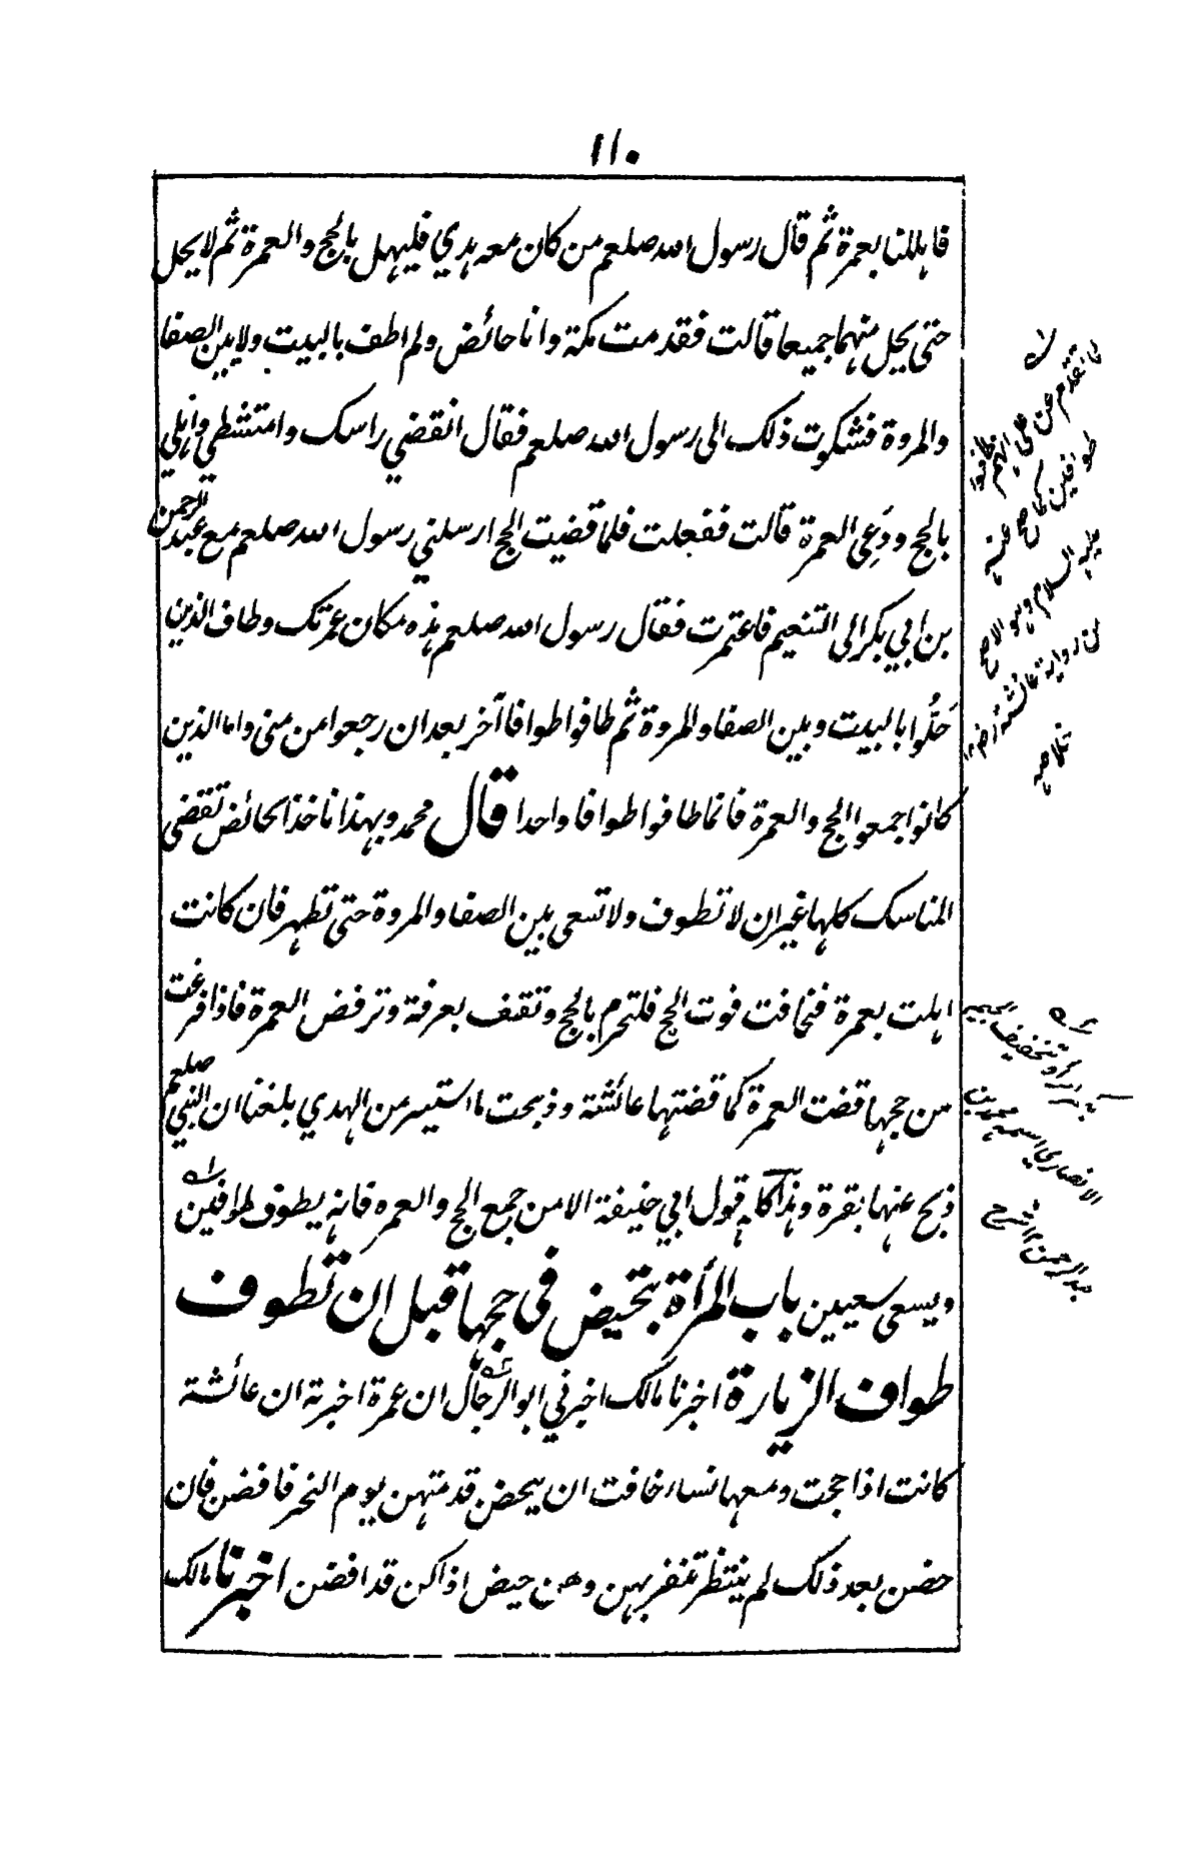 ١١٠
فاهللنا بعمرة ثم قال رسول الله صلعم من كان معه هدي فليهل بالحج والعمرة ثم لا يحل
حتى يحل منهما جميعا قالت فقدمت مكة وانا حائض ولم اطف بالبيت ولا بين الصفا
والمروة فشكوت ذلك الى رسول الله صلعم فقال انقضي راسك وامتشطي واهلي
بالحج ودَعِى العمرة قالت ففعلت فلما قضيت الحج ارسلني رسول الله صلعم مع عبد الرحمن
بن ابي بكر الى التنعيم فاعتمرت فقال رسول الله صلعم هذه مكان عمرتك وطاف الذين
حَلُّوا بالبيت وبين الصفا والمروة ثم طافوا طوافا آخر بعد ان رجعوا من منى واما الذين
كانوا جمعوا الحج والعمرة فانما طافوا طوافا واحدا قال محمد وبهذا ناخذ الحائض تقضى
المناسك كلها غير ان لا تطوف ولا تسعى بين الصفا والمروة حتى تطهر فان كانت
اهلت بعمرة فخافت فوت الحج فلتحرم بالحج وتقف بعرفة وترفض العمرة فاذا فرغت
من حجها قضت العمرة كما قضتها عائشة وذبحت ما استيسر من الهدي بلغنا ان النبي صلعم
ذبح عنها بقرة وهذا كله قول ابي حنيفة الا من جمع الحج والعمره فانه يطوف طوافين
ويسعى سعيين باب المرأة تحيض في حجها قبل ان تطوف
طواف الزيارة اخبرنا مالك اخبرني ابو الرجال ان عمرة اخبرته ان عائشة
كانت اذا حجت ومعها نساء خافت ان يحضن قدمتهن يوم النحر فافضن فان
حضن بعد ذلك لم ينتظر تنفر بهن وهن حيض اذا كن قد افضن اخبرنا مالك
لما تقدم عن علي انهم طافوا
طوافين كما صح عنه
عليه السلام وهو الاصح
من رواية عائشة رض ١٢
الانصاري اسمه محمد بن
عبد الرحمن ١٢ شرح